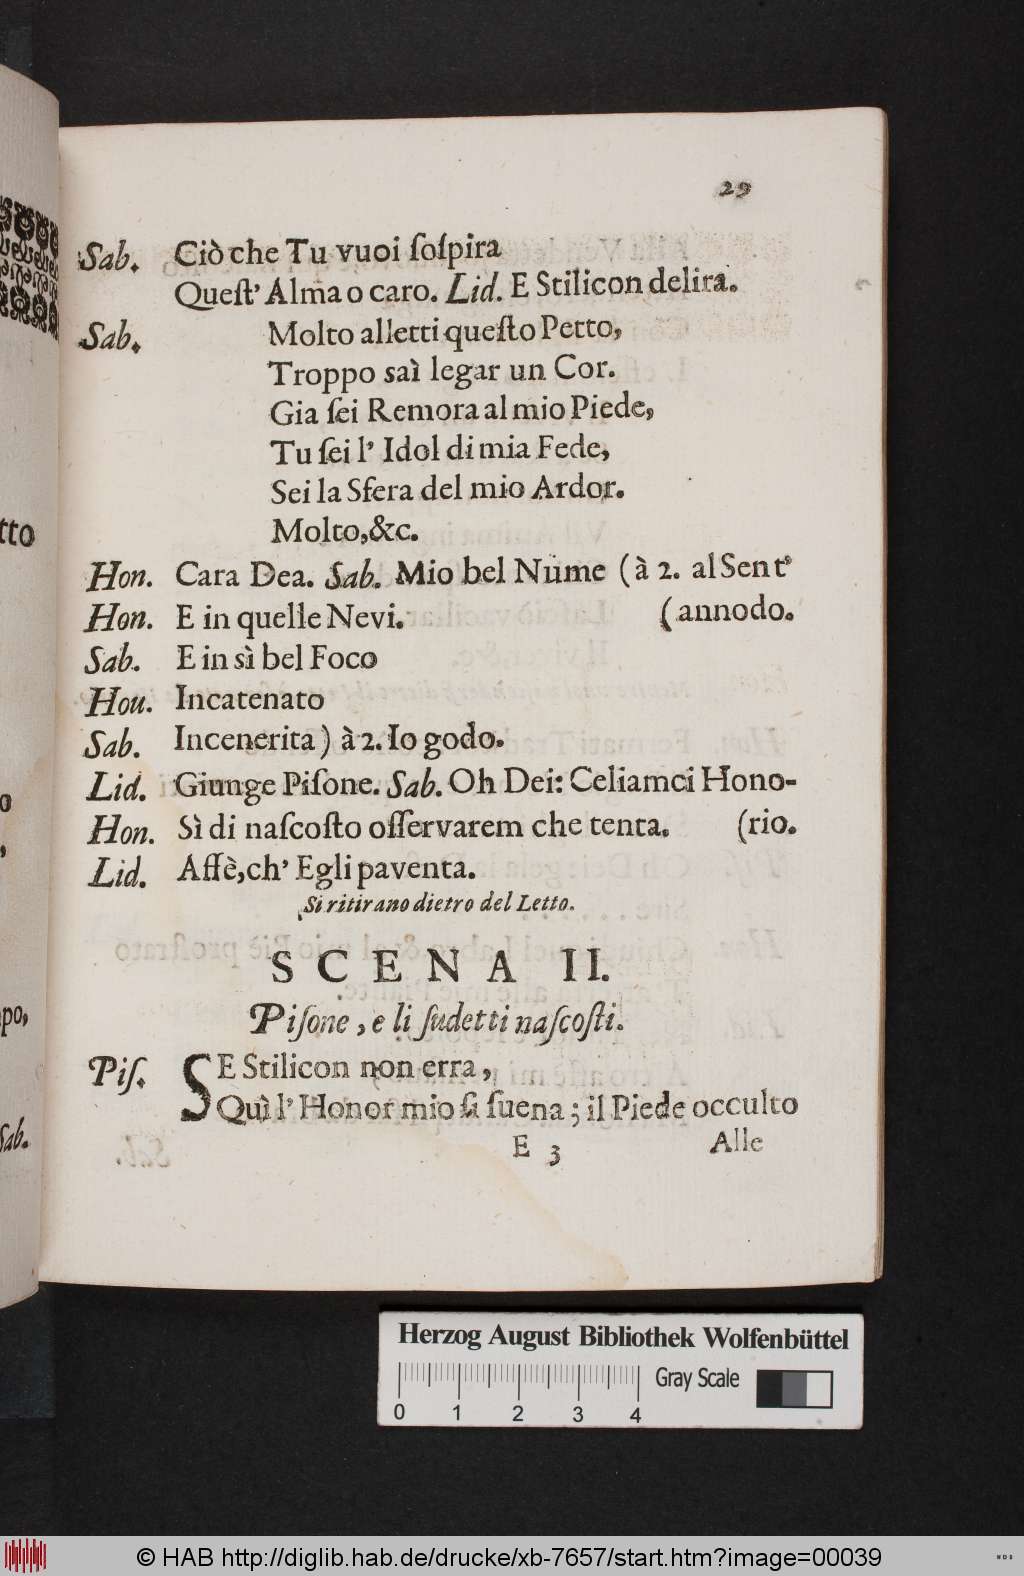 29
Sab. Ciò che Tu vuoi ſoſpira
Queſt' Alma o caro. Lid. E Stilicon delira.
Sab. Molto alletti queſto Petto,
Troppo saì legar un Cor.
Gia ſei Remora al mio Piede,
Tu ſei l' Idol di mia Fede,
Sei la Sfera del mio Ardor.
Molto,&c.
Hon. Cara Dea. Sab. Mio bel Nume (à 2. al Sent'
Hon. E in quelle Nevi. (annodo.
Sab. E in sì bel Foco
Hou. Incatenato
Sab. Incenerita ) à 2. Io godo.
Lid. Giunge Piſone. Sab. Oh Dei: Celiamci Hono-
Hon. Sì di naſcoſto oſſervarem che tenta. (rio.
Lid. Affè,ch' Egli paventa.
Si ritirano dietro del Letto.
SCENA II.
Piſone, e li ſudetti naſcoſti.
Piſ. SE Stilicon non erra,
Quì l' Honor mio ſi ſuena; il Piede occulto
E 3 Alle
tto
o
,
po,
Sab.
Herzog August Bibliothek Wolfenbüttel
Gray Scale
0 1 2 3 4
© HAB http://diglib.hab.de/drucke/xb-7657/start.htm?image=00039